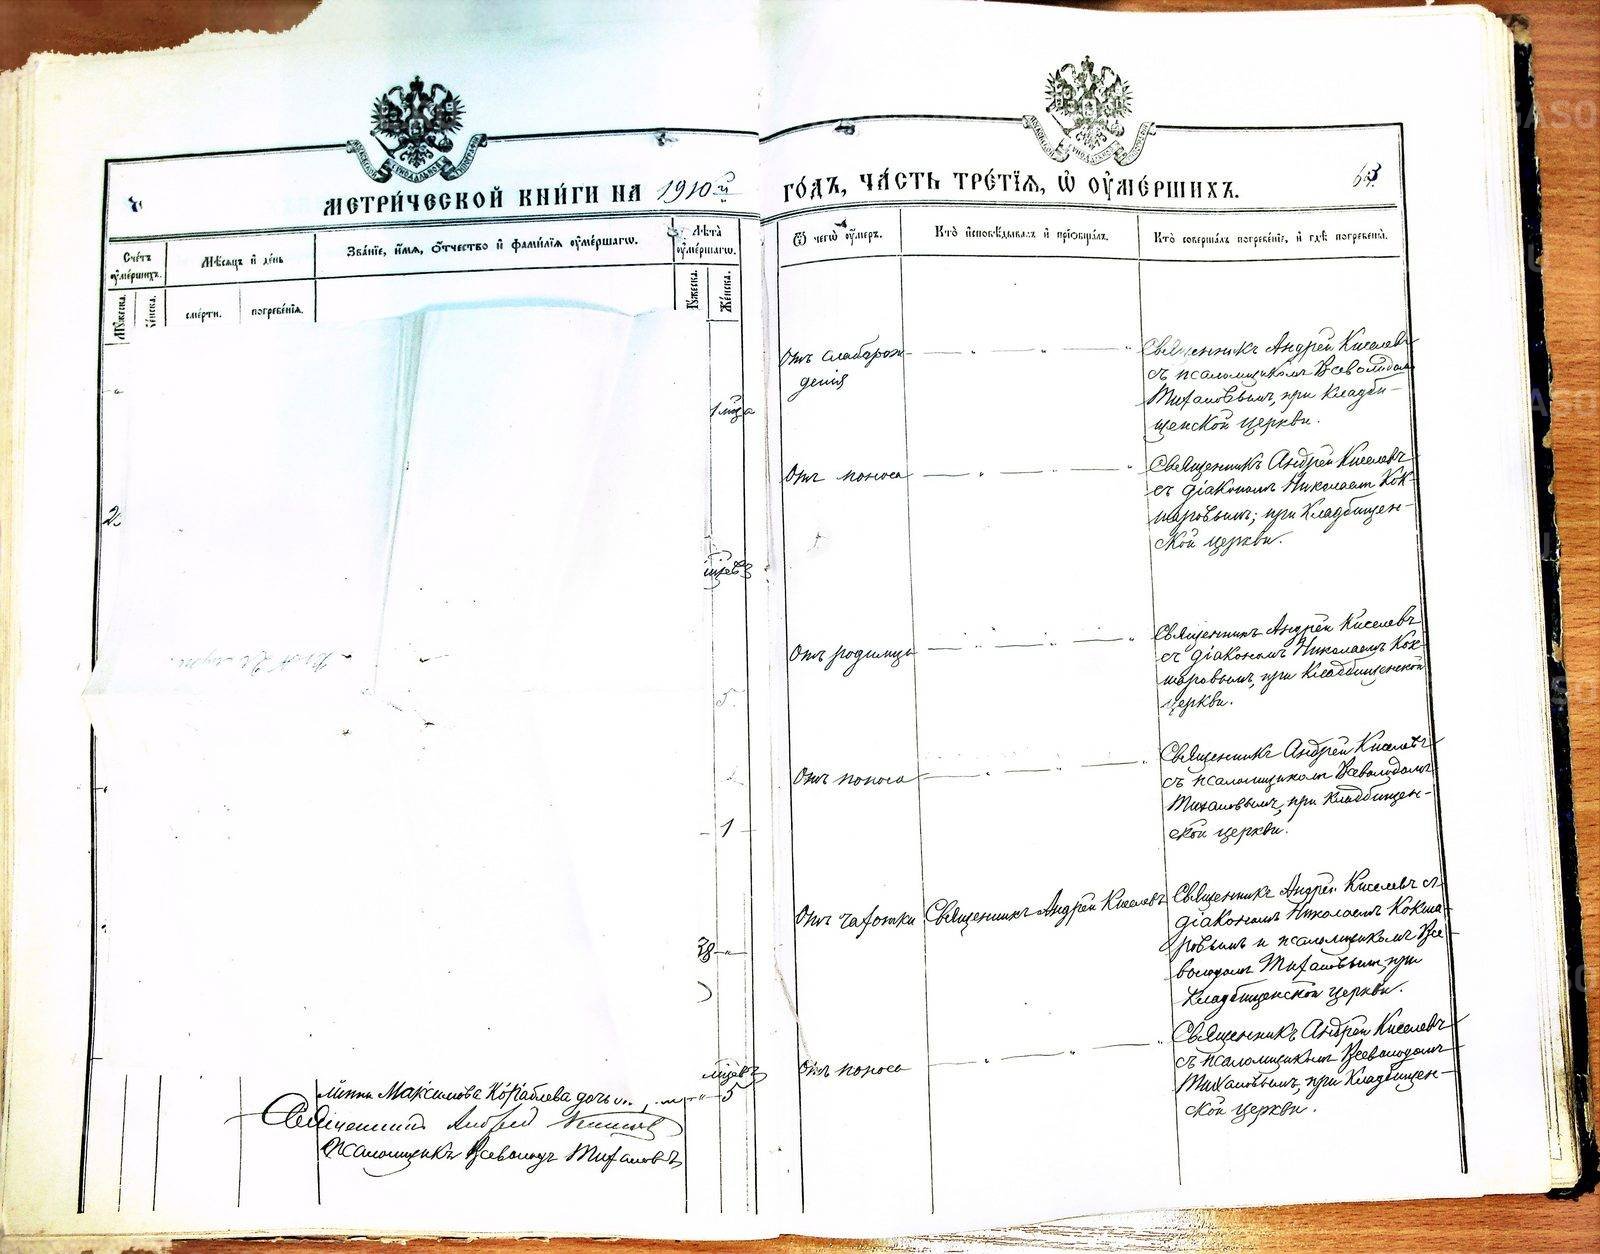 МЕТРИ́ЧЕСКОЙ КНИ́ГИ НА 1910й ГО́ДЪ, ЧА́СТЬ ТРЕ́ТІѦ, Ѿ ОУ҆МЕ́РШИХЪ.
Сче́тъ оу҆ме́ршихъ.
Мѣ́сѧцъ и҆ де́нь
Зва́нїе, и҆́мѧ, о҆́тчество и҆ фами́лїѧ оу҆ме́ршагѡ.
Лѣ́та оу҆ме́ршагѡ.
Ѿ чегѡ̀ оу҆́меръ.
Кто̀ и҆сповѣ́дывалъ и҆ прїѡбща́лъ.
Кто̀ соверша́лъ погребе́нїе, и҆ гдѣ̀ погребены̀.
Му́жеска.
Же́нска.
сме́рти.
погребе́нїѧ.
Му́жеска.
Же́нска.
Отъ слаборож-
денія
Священникъ Андрей Киселевъ
съ псаломщикомъ Всеволодомъ
Михаловымъ, при кладби-
щенской церкви.
2.
Отъ поноса
Священникъ Андрей Киселевъ
съ діакономъ Николаемъ Кок-
шаровымъ; при кладбищен-
ской церкви.
Отъ родимца
Священникъ Андрей Киселевъ
съ діакономъ Николаемъ Кок-
шаровымъ, при кладбищенской
церкви.
5
Отъ поноса
Священникъ Андрей Киселевъ
съ псаломщикомъ Всеволодомъ
Михаловымъ, при кладбищен-
ской церкви.
1
Отъ чахотки
Священникъ Андрей Киселевъ
Священникъ Андрей Киселевъ съ
діакономъ Николаемъ Кокша-
ровымъ и псаломщикомъ Все-
володомъ Михаловымъ, при
кладбищенской церкви.
38
мцевъ
5
Отъ поноса
Священникъ Андрей Киселевъ
съ псаломщикомъ Всеволодомъ
Михаловымъ, при кладбищен-
ской церкви.
Максимова Кораблева дочь
Священникъ Андрей Киселевъ
Псаломщикъ Всеволодъ Михаловъ